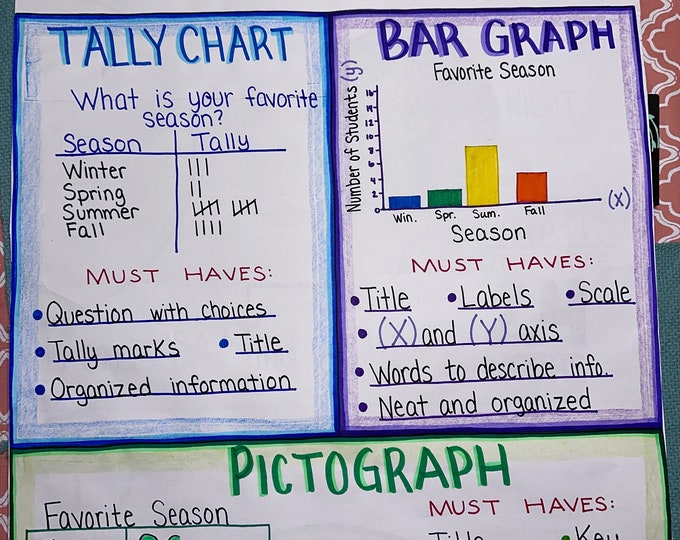 TALLY CHART
What is your favorite
season?
Season Tally
Winter
Spring
Summer
Fall
MUST HAVES:
Question with choices
Tally marks • Title
Organized information
BAR GRAPH
Favorite Season
Number of Students (y)
16
14
12
10
8
6
4
2
0
Win. Spr. Sum. Fall
(X)
Season
MUST HAVES:
• Title • Labels • Scale
• (X) and (Y) axis
• Words to describe info.
• Neat and organized
PICTOGRAPH
Favorite Season
MUST HAVES:
Title • Key